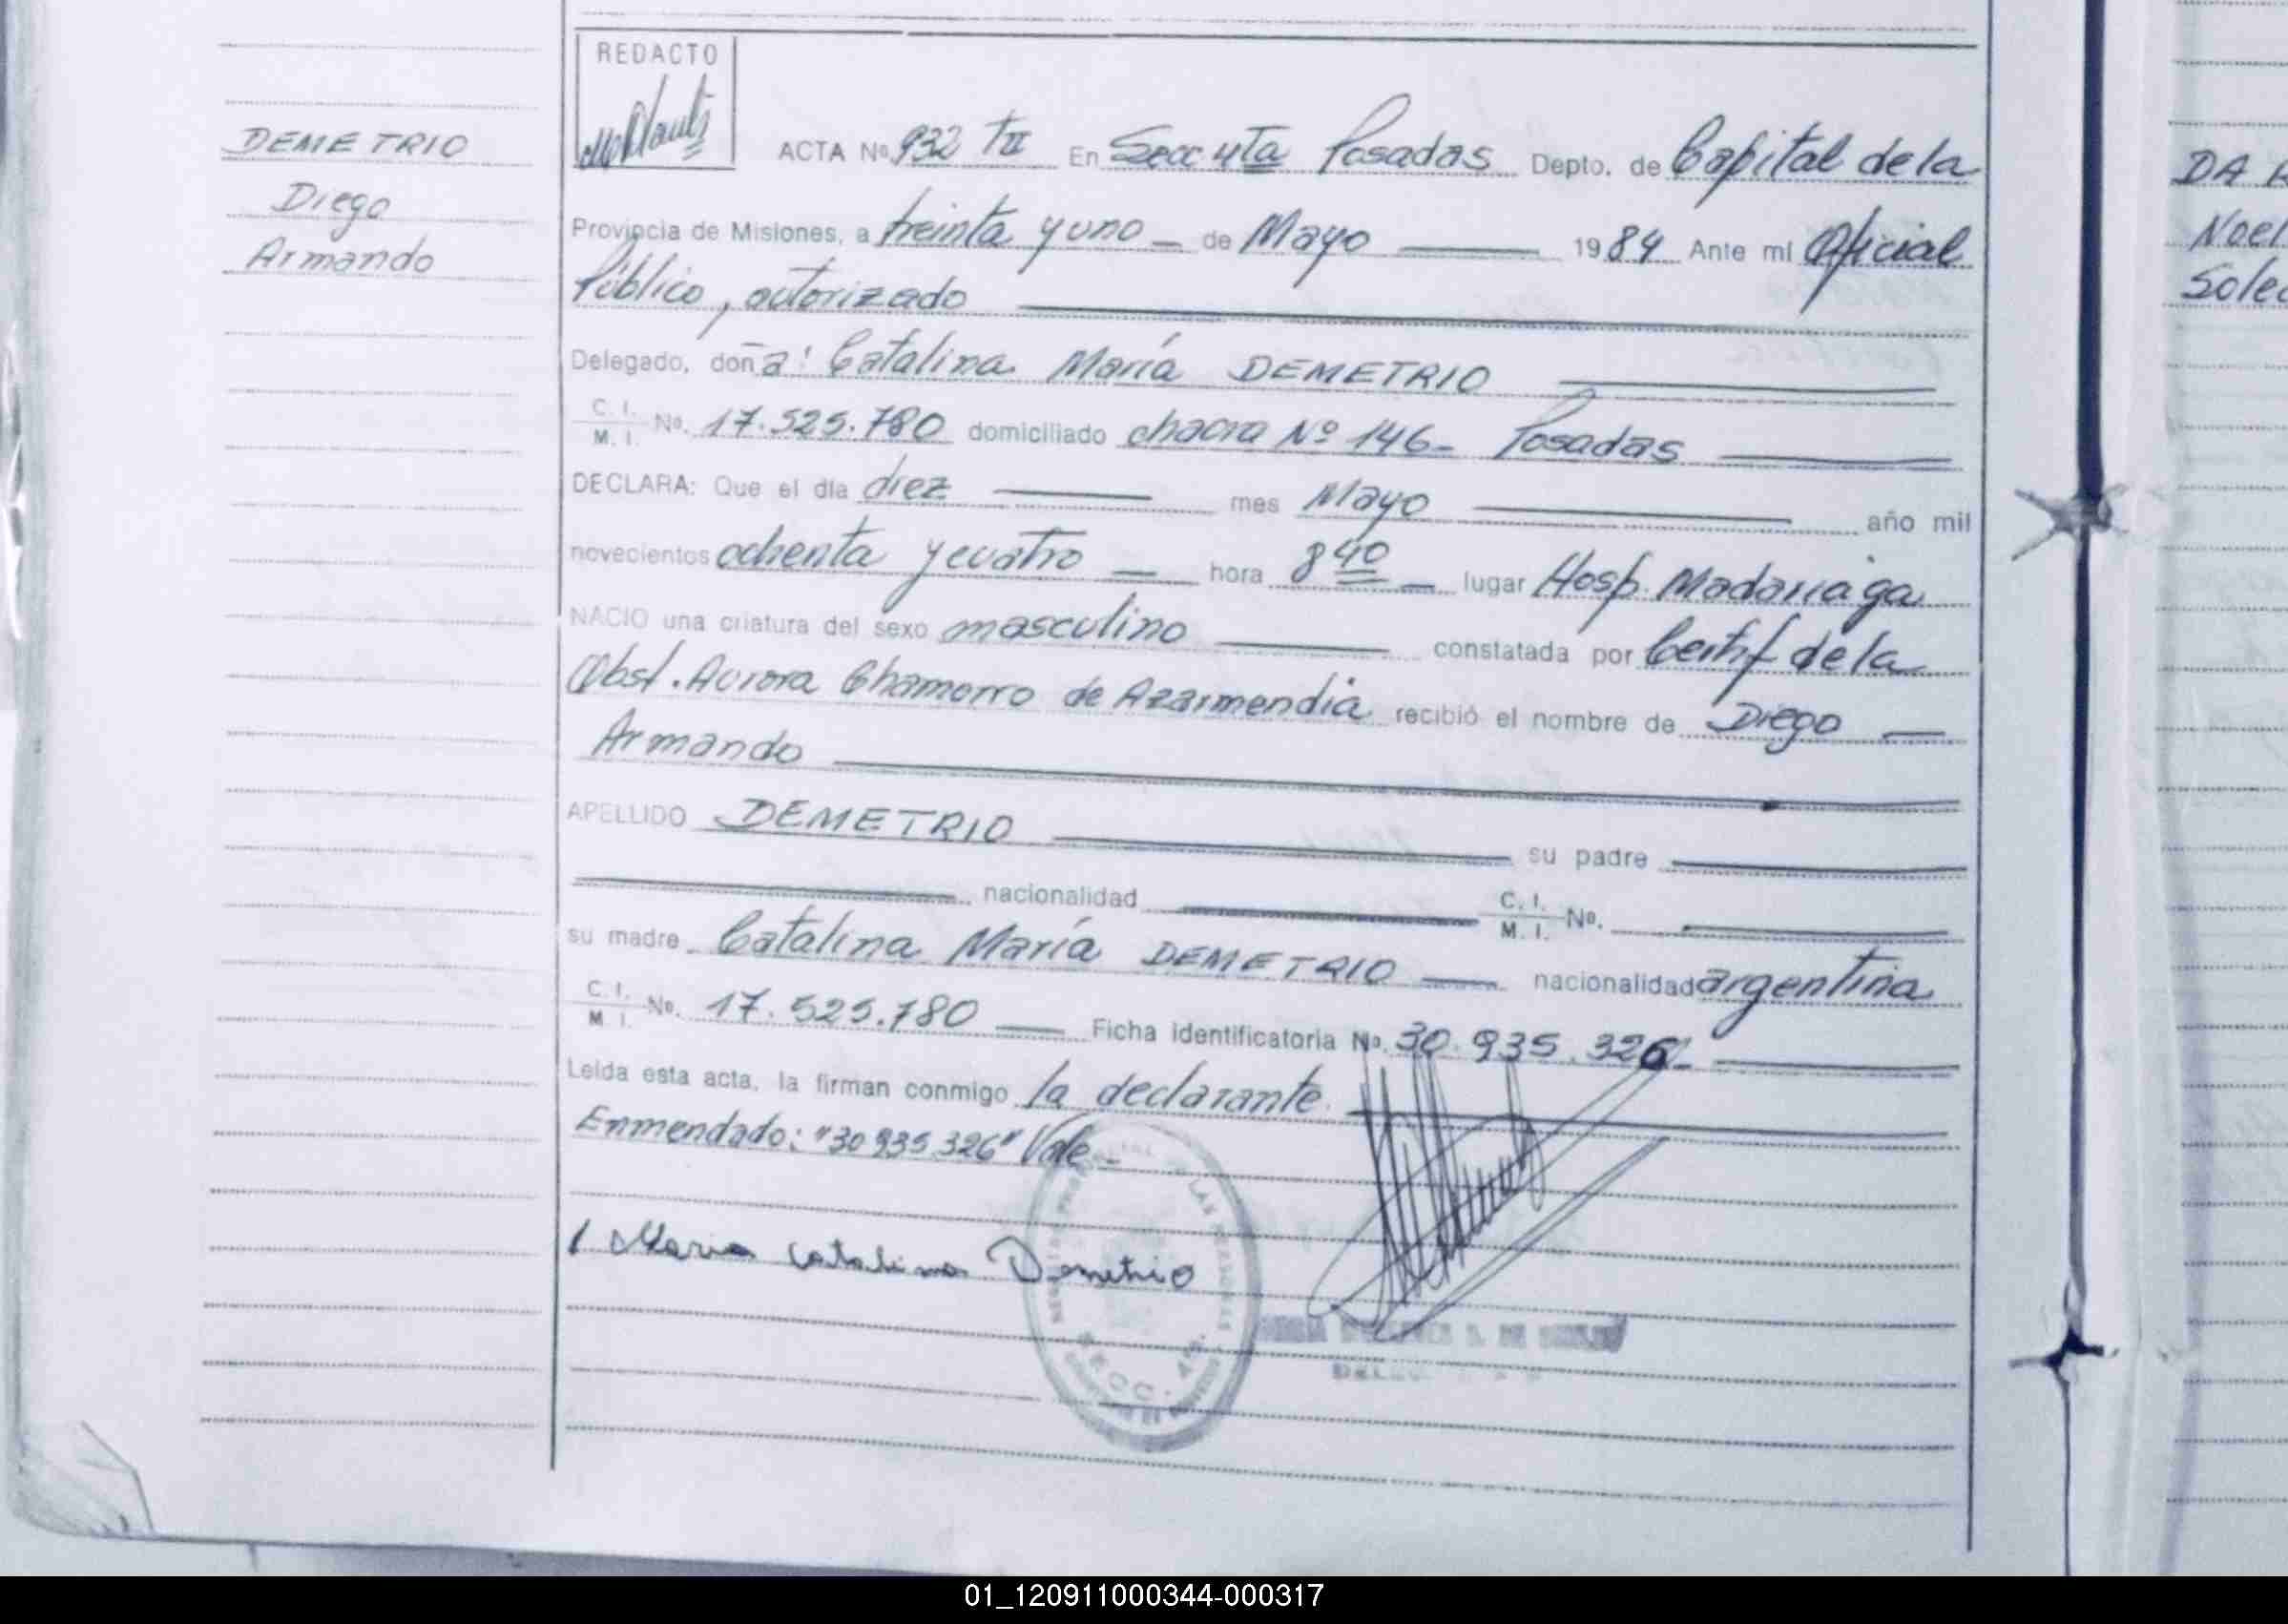 REDACTO
DEMETRIO
Diego
Armando
ACTA Nº 932 TII En Secc 4ta Posadas Depto. de Capital de la
Provincia de Misiones, a treinta y uno - de Mayo 1984 Ante mí Oficial
Público, autorizado
Delegado, doña: Catalina María DEMETRIO
C. I. M. I. No. 17.525.780 domiciliado chacra Nº 146- Posadas
DECLARA: Que el día diez mes Mayo año mil
novecientos ochenta y cuatro - hora 8 40 - lugar Hosp. Madariaga
NACIO una criatura del sexo masculino constatada por Certif de la
Obst. Aurora Chamorro de Azarmendia recibió el nombre de Diego
Armando
APELLIDO DEMETRIO su padre
nacionalidad C. I. M. I. No.
su madre Catalina María DEMETRIO nacionalidad argentina
C. I. M. I. No. 17.525.780 Ficha identificatoria No. 30.935.326-
Leída esta acta, la firman conmigo la declarante
Enmendado: "30 935 326" Vale-
Maria Catalina Demetrio
DA
Noel
Sole
01_120911000344-000317